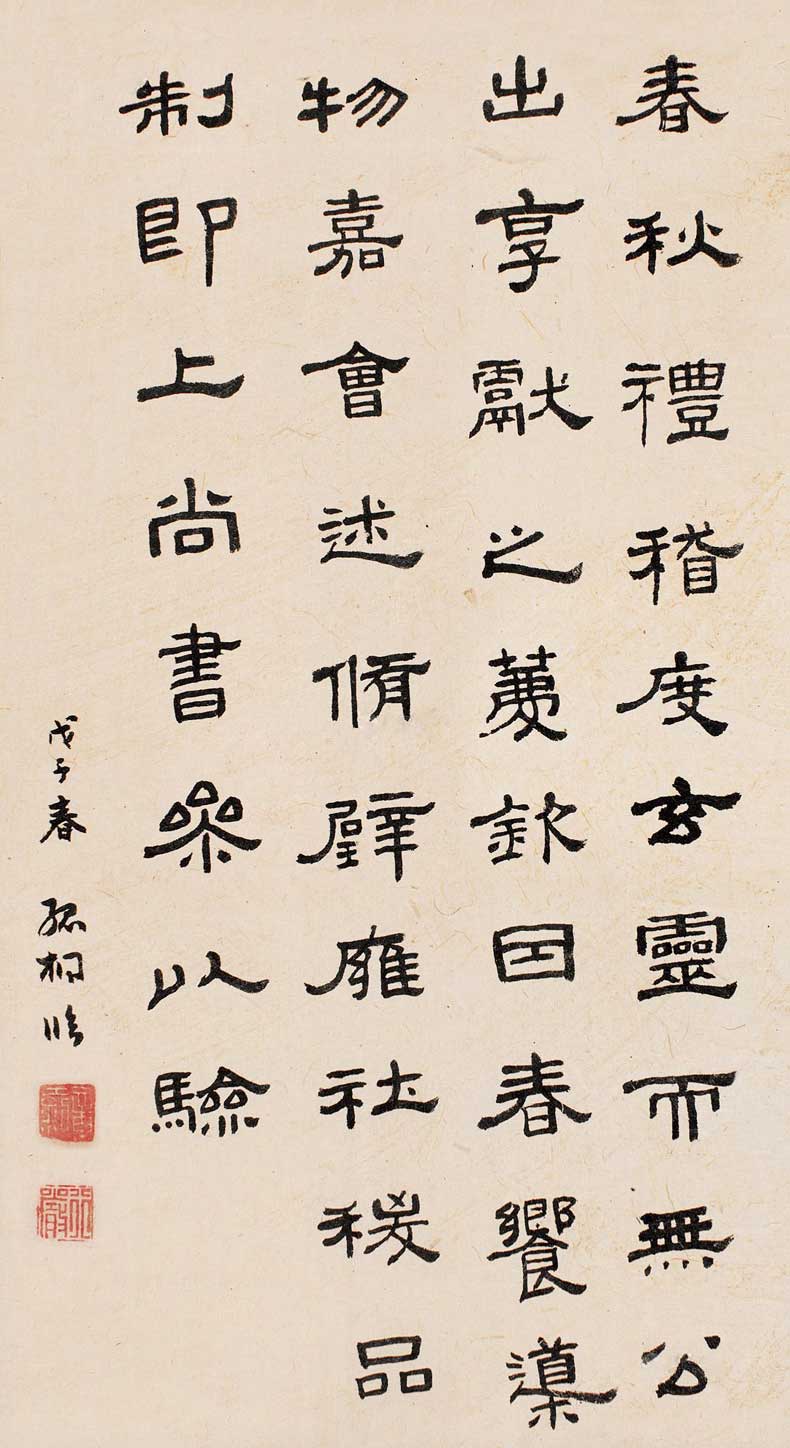 春秋禮稽度玄靈而無公
出享獻之薦欽因春饗導
物嘉會述脩璧廱社稷品
制即上尚書叅以驗
戊子春 孤桐臨
行嚴